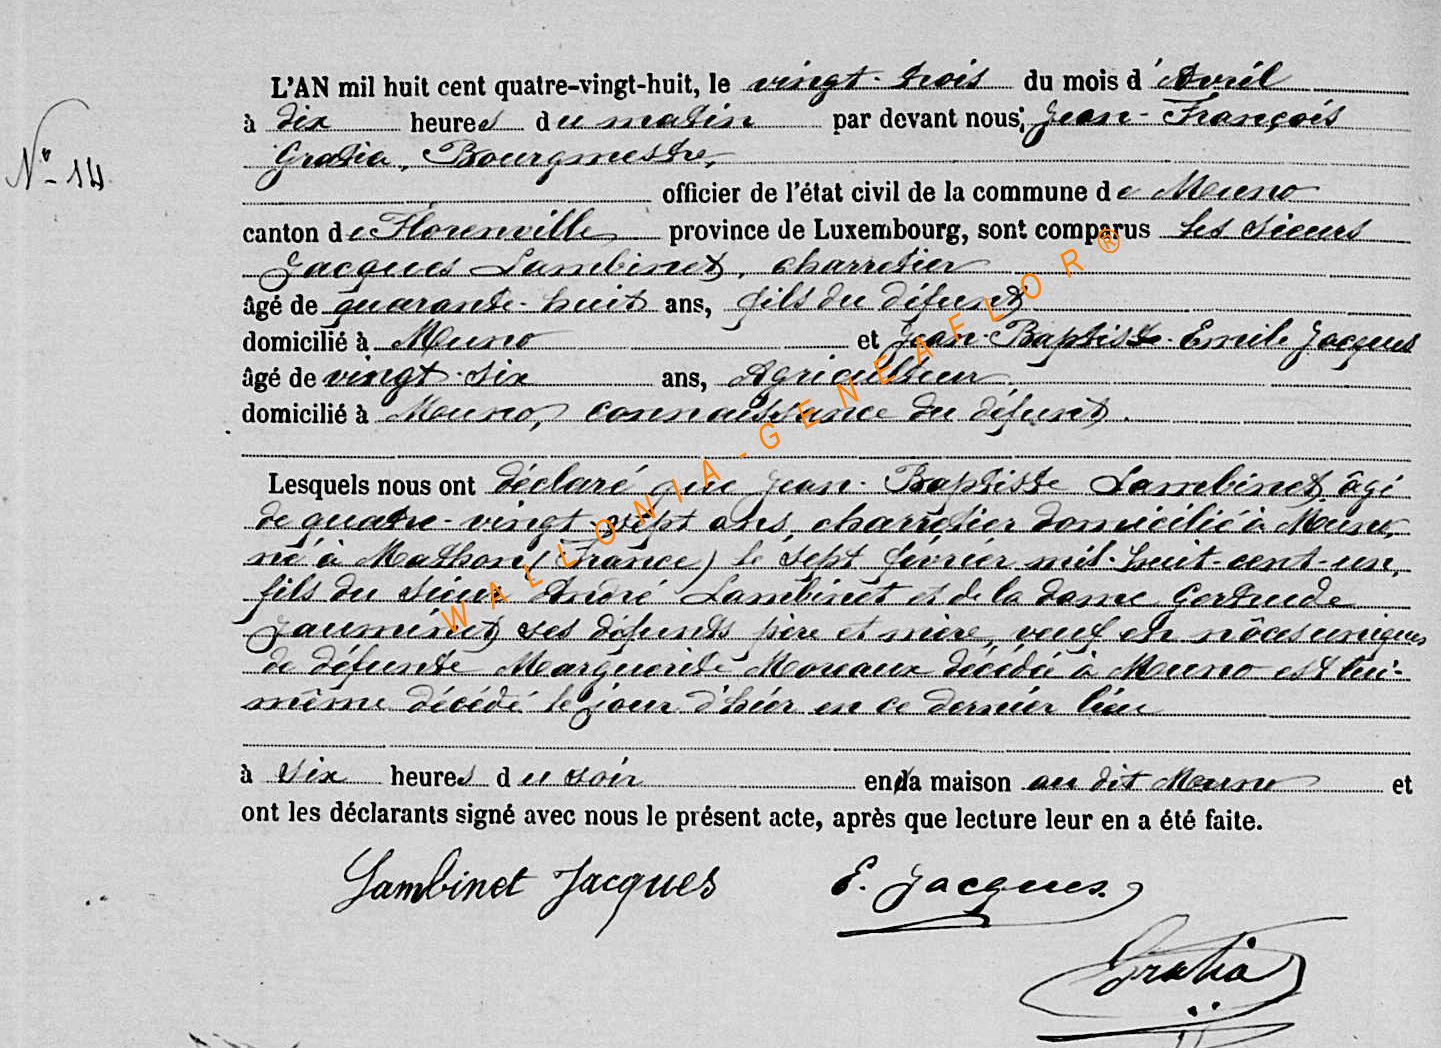 L'AN mil huit cent quatre-vingt-huit, le vingt-trois du mois d'Avril
à dix heures du matin par devant nous, Jean-François
N° 14
Gratia, Bourgmestre,
officier de l'état civil de la commune de Muno
canton de Florenville province de Luxembourg, sont comparus les sieurs
Jacques Lambinet, charretier
âgé de quarante-huit ans, fils du défunt
domicilié à Muno et Jean-Baptiste-Emile Jacques
âgé de vingt-six ans, Agriculteur
domicilié à Muno, connaissance du défunt.
Lesquels nous ont déclaré que Jean-Baptiste Lambinet, âgé
de quatre-vingt-sept ans, charretier domicilié à Muno,
né à Mathon (France) le sept février mil-huit-cent-un,
fils du sieur André Lambinet et de la dame Gertrude
Jauminet ses défunts père et mère, veuf en nôces uniques
de défunte Marguerite Moreaux décédée à Muno est lui-
même décédé le jour d'hier en ce dernier lieu
à six heures du soir en la maison au dit Muno et
ont les déclarants signé avec nous le présent acte, après que lecture leur en a été faite.
Lambinet Jacques E. Jacques
Gratia
WALLONIA-GENEAFLOR®